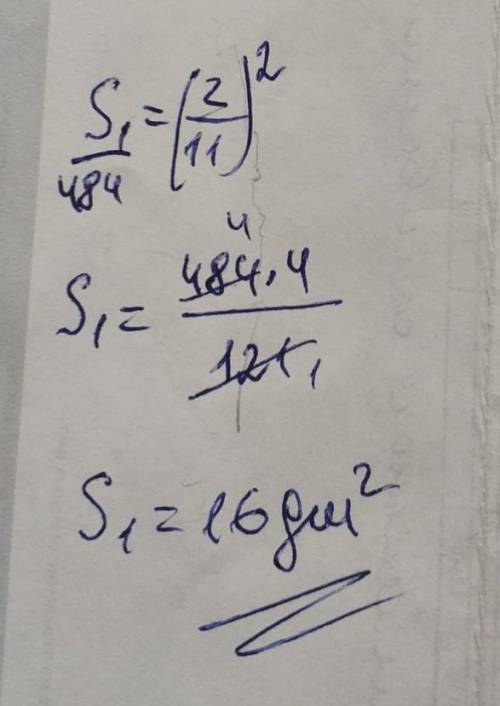 S₁/484 = (2/11)²
S₁ = 484·4/121
4 1
S₁ = 16 дм²